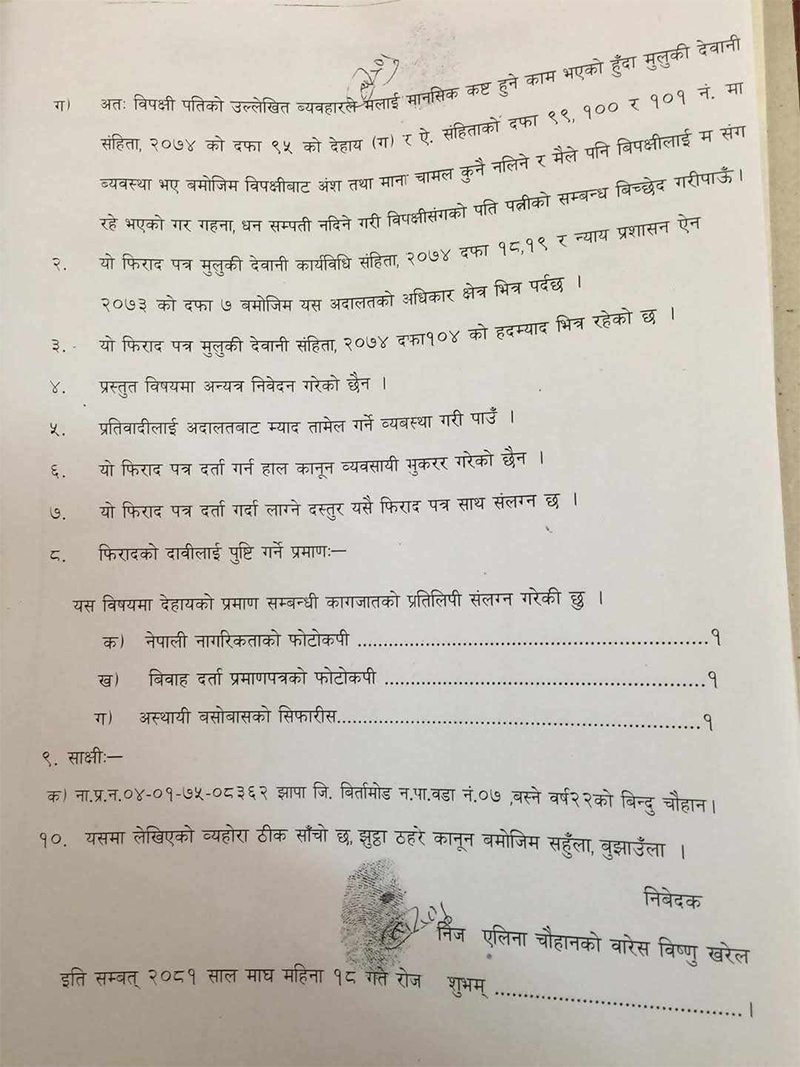 ग) अतः विपक्षी पतिको उल्लेखित व्यवहारले मलाई मानसिक कष्ट हुने काम भएको हुँदा मुलुकी देवानी
संहिता, २०७४ को दफा ९५ को देहाय (ग) र ऐ. संहिताको दफा ९९, १०० र १०१ नं. मा
व्यवस्था भए बमोजिम विपक्षीबाट अंश तथा माना चामल कुनै नलिने र मैले पनि बिपक्षीलाई म संग
रहे भएको गर गहना, धन सम्पती नदिने गरी विपक्षीसंगको पति पत्नीको सम्बन्ध बिच्छेद गरीपाऊँ ।
२. यो फिराद पत्र मुलुकी देवानी कार्यविधि संहिता, २०७४ दफा १८,१९ र न्याय प्रशासन ऐन
२०७३ को दफा ७ बमोजिम यस अदालतको अधिकार क्षेत्र भित्र पर्दछ ।
३. यो फिराद पत्र मुलुकी देवानी संहिता, २०७४ दफा१०४ को हदम्याद भित्र रहेको छ ।
४. प्रस्तुत विषयमा अन्यत्र निवेदन गरेको छैन ।
५. प्रतिवादीलाई अदालतबाट म्याद तामेल गर्ने व्यबस्था गरी पाउँ ।
६. यो फिराद पत्र दर्ता गर्न हाल कानून व्यवसायी मुकरर गरेको छैन ।
७. यो फिराद पत्र दर्ता गर्दा लाग्ने दस्तुर यसै फिराद पत्र साथ संलग्न छ ।
८. फिरादको दावीलाई पुष्टि गर्ने प्रमाणः—
यस विषयमा देहायको प्रमाण सम्बन्धी कागजातको प्रतिलिपी संलग्न गरेकी छु ।
क) नेपाली नागरिकताको फोटोकपी ..................................................१
ख) बिवाह दर्ता प्रमाणपत्रको फोटोकपी ..............................................१
ग) अस्थायी बसोबासको सिफारीस....................................................१
९. साक्षीः—
क) ना.प्र.न.०४-०१-७५-०८३६२ झापा जि. बिर्तामोड न.पा.वडा नं.०७ ,बस्ने वर्ष२२को बिन्दु चौहान।
१०. यसमा लेखिएको व्यहोरा ठीक साँचो छ, झुट्ठा ठहरे कानून बमोजिम सहुँला, बुझाउँला ।
निबेदक
निज एलिना चौहानको वारेस विष्णु खरेल
इति सम्बत् २०८१ साल माघ महिना १८ गते रोज शुभम् ....................................।